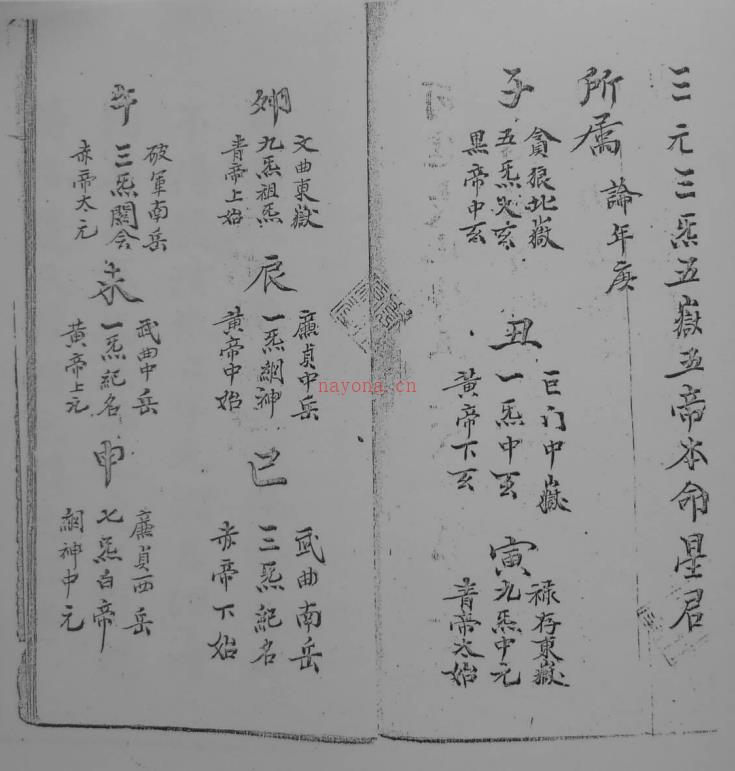 三元三炁五嶽五帝本命星君
所屬 論年庚
子
貪狼北嶽
五炁
黑帝中玄
丑
巨门中嶽
一炁中玄
黃帝下玄
寅
禄存東嶽
九炁中元
青帝太始
卯
文曲東嶽
九炁祖炁
青帝上始
辰
廉貞中岳
一炁綱神
黃帝中始
巳
武曲南岳
三炁紀名
赤帝下始
午
破軍南岳
三炁
赤帝太元
未
武曲中岳
一炁紀名
黃帝上元
申
廉貞西岳
七炁白帝
綱神中元
nayona.cn